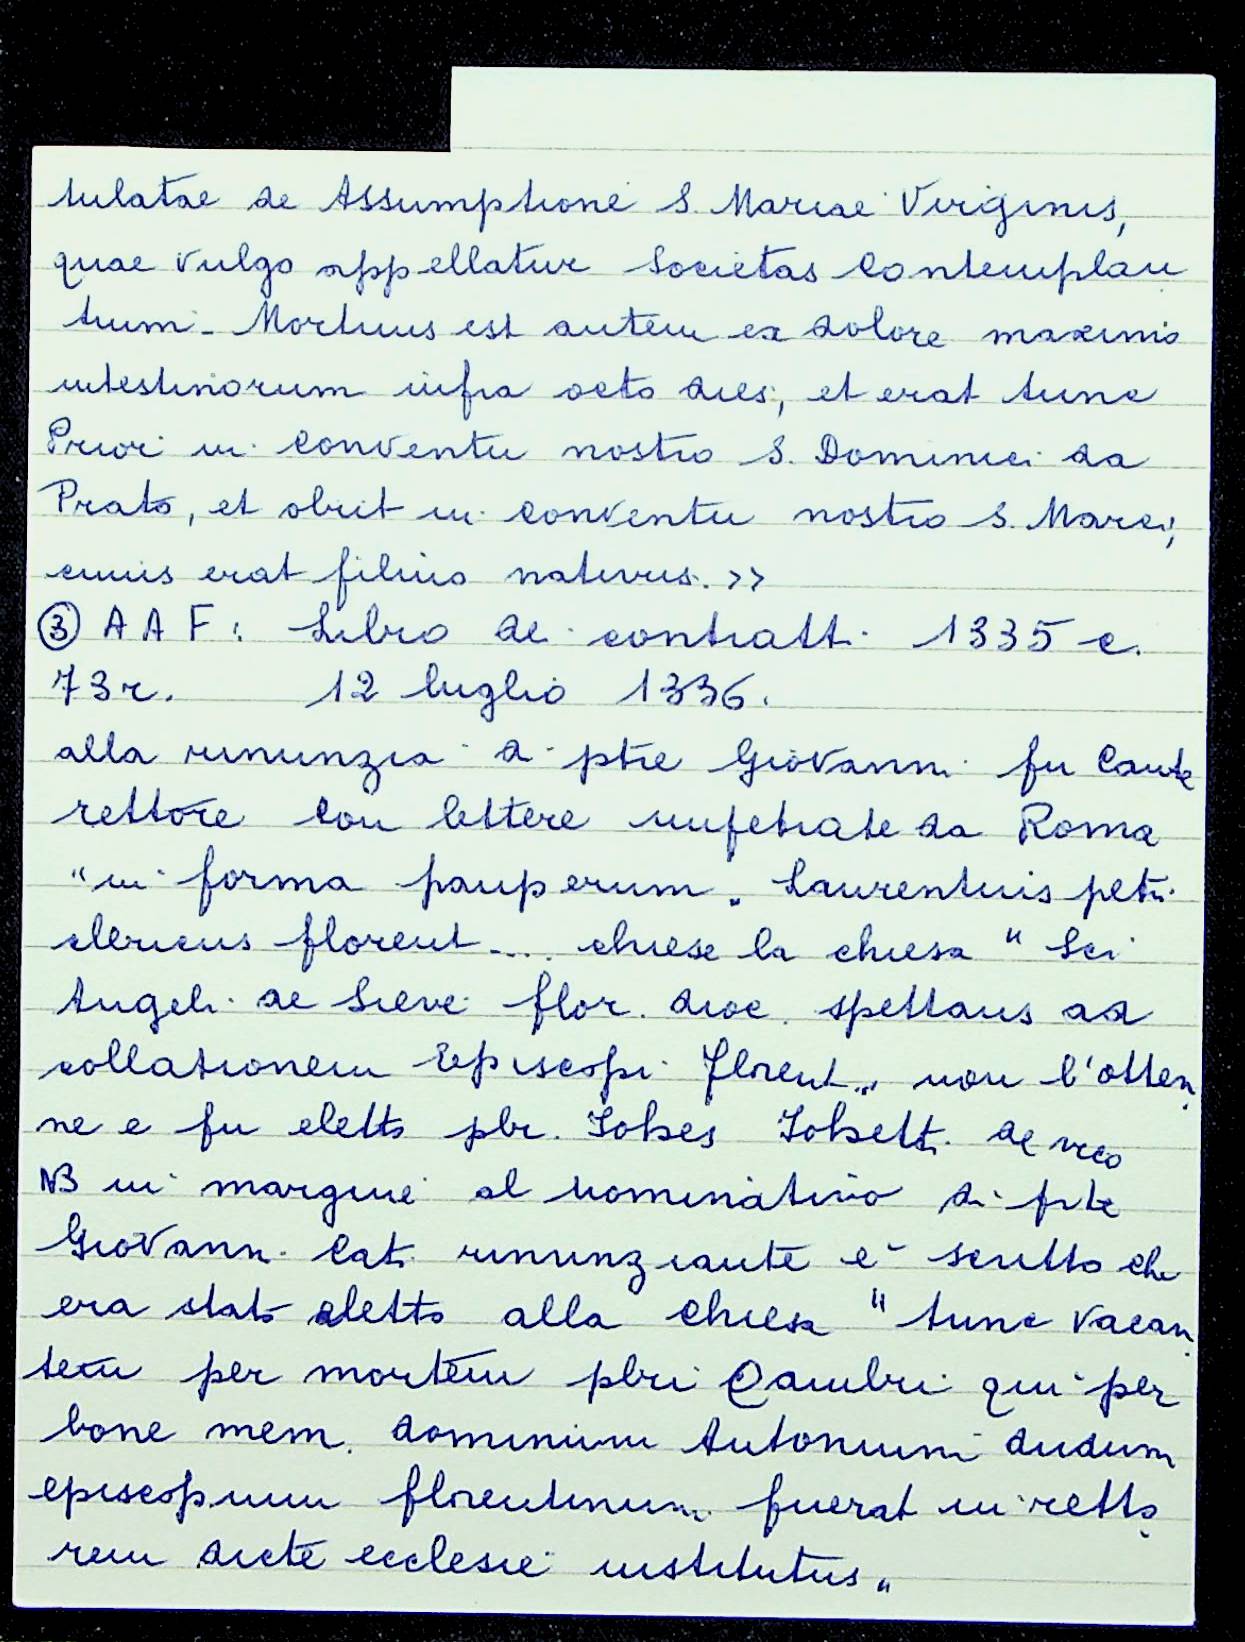 tulatae de Assumptione S. Mariae Virginis,
quae vulgo appellatur Societas Contemplan
tium. Mortuus est autem ex dolore maximo
intestinorum infra octo dies, et erat tunc
Prior in conventu nostro S. Dominici da
Prato, et obiit in conventu nostro S. Marci,
cuius erat filius nativus. >>
③ A A F: Libro di contratti 1335 c.
73r. 12 luglio 1336.
alla rinunzia di pte Giovanni fu Cante
rettore con lettere impetrate da Roma
"in forma pauperum" Laurentius petri
clericus florent.... chiese la chiesa "Sci
Angeli de Sieve flor. dioc. spettans ad
collationem Episcopi florent." non l'otten
ne e fu eletto pbr. Iohes Iohetti de vico
NB in margine al nominativo di pte
Giovanni Cati rinunziante è scritto che
era stato eletto alla chiesa "tunc vacan
tem per mortem pbri Cambii qui per
bone mem. dominum Antonium dudum
episcopum florentinum fuerat in retto
rem dicte ecclesie institutus"